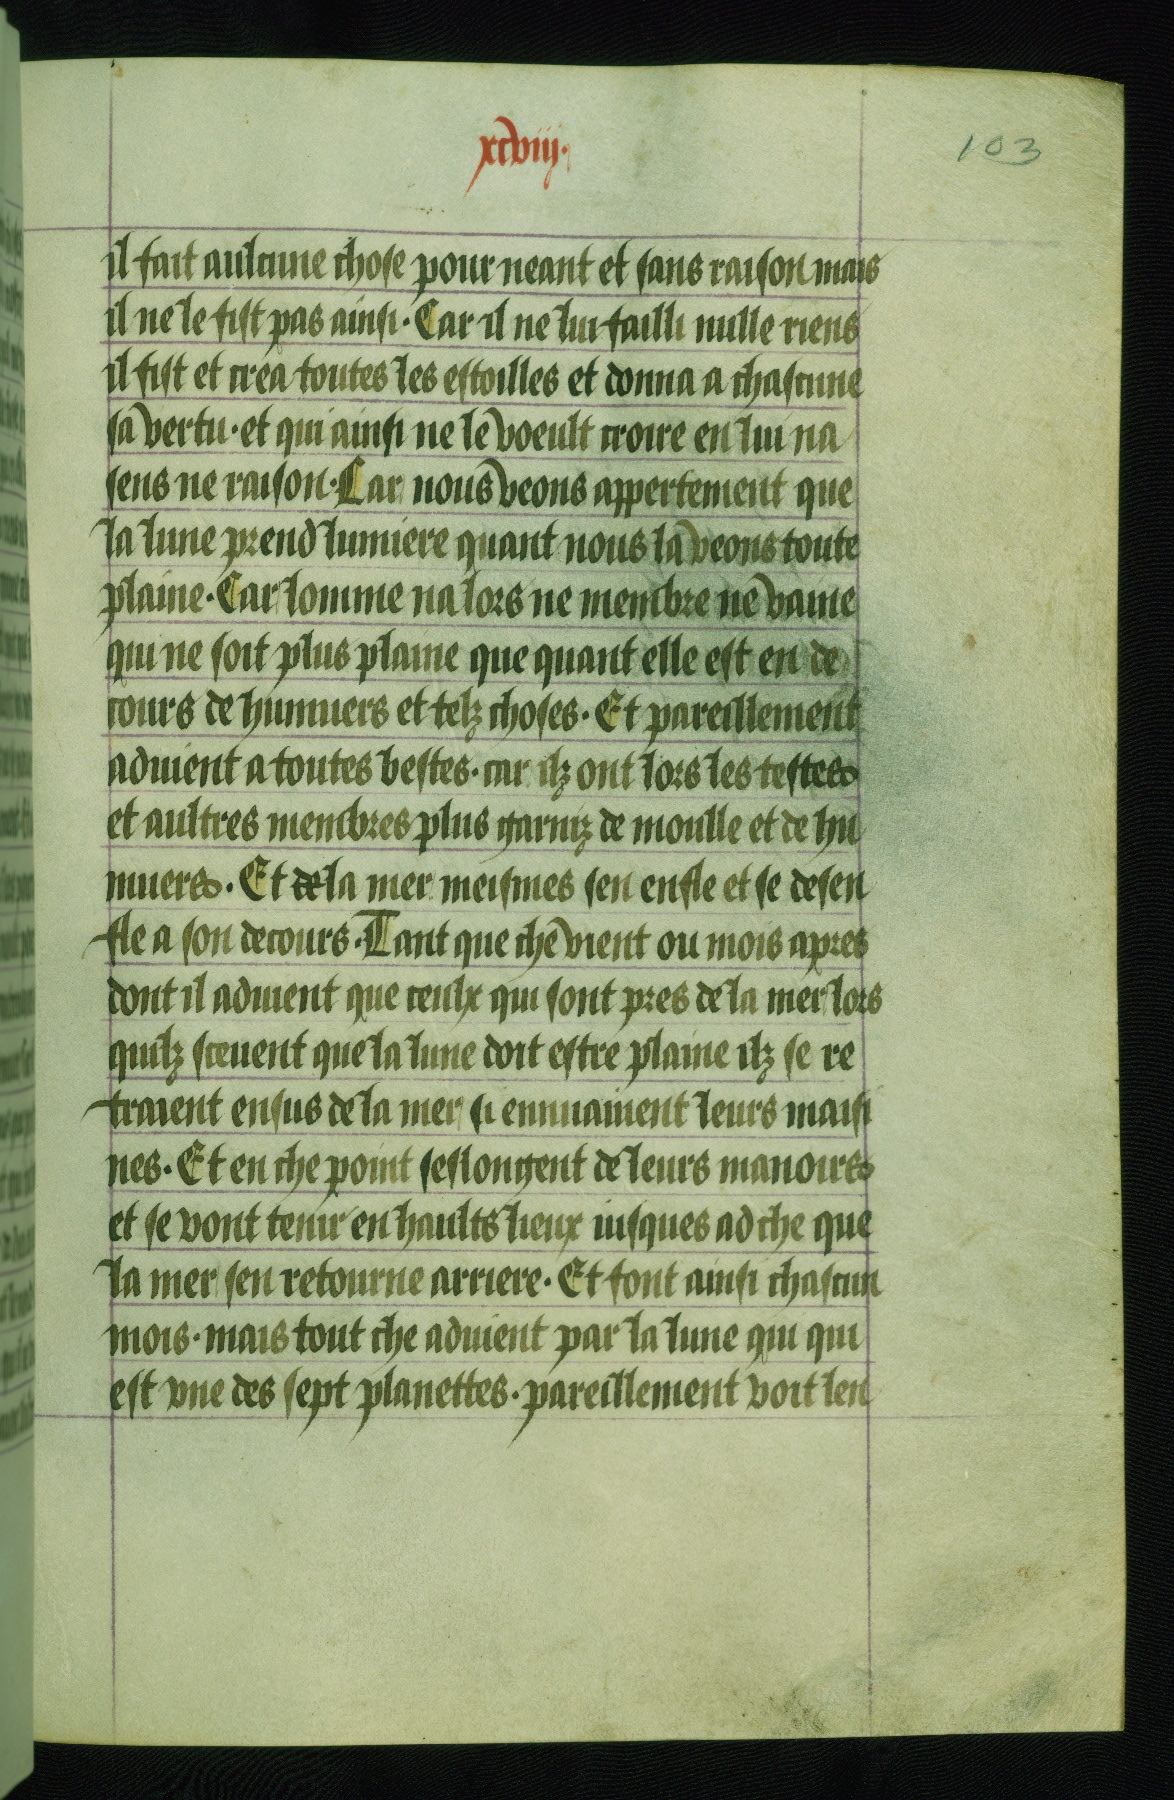 xcviij.
103
il fait aulcune chose pour neant et sans raison mais
il ne le fist pas ainsi. Car il ne lui failli nulle riens
il fist et crea toutes les estoilles et donna a chascune
sa vertu. et qui ainsi ne le voeult croire en lui na
sens ne raison. Car nous veons appertement que
la lune prend lumiere quant nous la veons toute
plaine. Car lomme na lors ne membre ne vaine
qui ne soit plus plaine que quant elle est en de
cours de humuers et telz choses. Et pareillement
aduient a toutes bestes. car ilz ont lors les testes
et aultres membres plus garniz de moulle et de hu
muers. Et de la mer meismes sen enfle et se desen
fle a son decours. Tant que che vient ou mois apres
dont il aduient que ceulx qui sont pres de la mer lors
quilz sceuent que la lune doit estre plaine ilz se re
traient ensus de la mer si ennuaiuent leurs maisi
nes. Et en che point seslongent de leurs manoirs
et se vont tenir en haults lieux iusques ad che que
la mer sen retourne arriere. Et font ainsi chascun
mois. mais tout che aduient par la lune qui qui
est vne des sept planettes. pareillement voit len